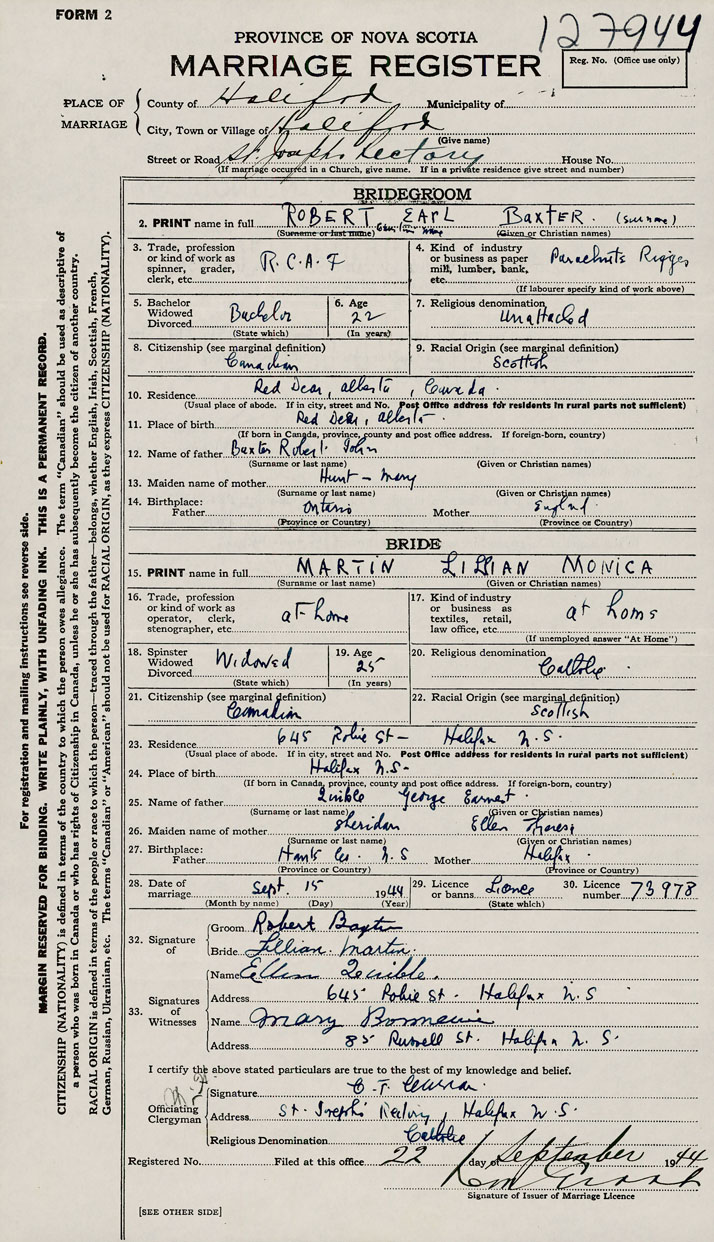 FORM 2
127944
PROVINCE OF NOVA SCOTIA
MARRIAGE REGISTER
Reg. No. (Office use only)
PLACE OF MARRIAGE
County of Halifax Municipality of
City, Town or Village of Halifax
(Give name)
Street or Road St Josephs Rectory House No.
(If marriage occurred in a Church, give name. If in a private residence give street and number)
BRIDEGROOM
2. PRINT name in full ROBERT EARL BAXTER. (surname)
(Surname or last name) (Given or Christian names)
3. Trade, profession or kind of work as spinner, grader, clerk, etc. R.C.A.F
4. Kind of industry or business as paper mill, lumber, bank, etc. Parachute
(If labourer specify kind of work above)
5. Bachelor Widowed Divorced Bachelor
(State which)
6. Age 22
(In years)
7. Religious denomination Unattached
8. Citizenship (see marginal definition) Canadian
9. Racial Origin (see marginal definition) Scottish
10. Residence Red Deer, Alberta, Canada.
(Usual place of abode. If in city, street and No. Post Office address for residents in rural parts not sufficient)
11. Place of birth Red Deer, Alberta
(If born in Canada, province, county and post office address. If foreign-born, country)
12. Name of father Baxter Robert John
(Surname or last name) (Given or Christian names)
13. Maiden name of mother Hunt - Mary
(Surname or last name) (Given or Christian names)
14. Birthplace: Father Ontario Mother England
(Province or Country) (Province or Country)
BRIDE
15. PRINT name in full MARTIN LILLIAN MONICA
(Surname or last name) (Given or Christian names)
16. Trade, profession or kind of work as operator, clerk, stenographer, etc. at home
17. Kind of industry or business as textiles, retail, law office, etc. at home
(If unemployed answer "At Home")
18. Spinster Widowed Divorced Widowed
(State which)
19. Age 25
(In years)
20. Religious denomination Catholic
21. Citizenship (see marginal definition) Canadian
22. Racial Origin (see marginal definition) Scottish
23. Residence 645 Robie St - Halifax N.S.
(Usual place of abode. If in city, street and No. Post Office address for residents in rural parts not sufficient)
24. Place of birth Halifax N.S-
(If born in Canada, province, county and post office address. If foreign-born, country)
25. Name of father George Earnest
(Surname or last name) (Given or Christian names)
26. Maiden name of mother Sheridan Ellen Theresa
(Surname or last name) (Given or Christian names)
27. Birthplace: Father Hants Co. N.S Mother Halifax
(Province or Country) (Province or Country)
28. Date of marriage Sept. 15 1944
(Month by name) (Day) (Year)
29. Licence or banns Licence
(State which)
30. Licence number 73978
32. Signature of
Groom Robert Baxter
Bride Lillian Martin.
33. Signatures of Witnesses
Name Ellen
Address 645 Robie St. Halifax N.S
Name Mary
Address 85 Russell St. Halifax N.S.
I certify the above stated particulars are true to the best of my knowledge and belief.
Officiating Clergyman
Signature C. T.
Address St. Joseph's Rectory, Halifax N.S.
Religious Denomination Catholic
Registered No. Filed at this office 22 day of September 1944
Signature of Issuer of Marriage Licence
[SEE OTHER SIDE]
For registration and mailing instructions see reverse side.
MARGIN RESERVED FOR BINDING. WRITE PLAINLY, WITH UNFADING INK. THIS IS A PERMANENT RECORD.
CITIZENSHIP (NATIONALITY) is defined in terms of the country to which the person owes allegiance. The term "Canadian" should be used as descriptive of
a person who was born in Canada or who has rights of Citizenship in Canada, unless he or she has subsequently become the citizen of another country.
RACIAL ORIGIN is defined in terms of the people or race to which the person—traced through the father—belongs, whether English, Irish, Scottish, French,
German, Russian, Ukrainian, etc. The terms "Canadian" or "American" should not be used for RACIAL ORIGIN, as they express CITIZENSHIP (NATIONALITY).